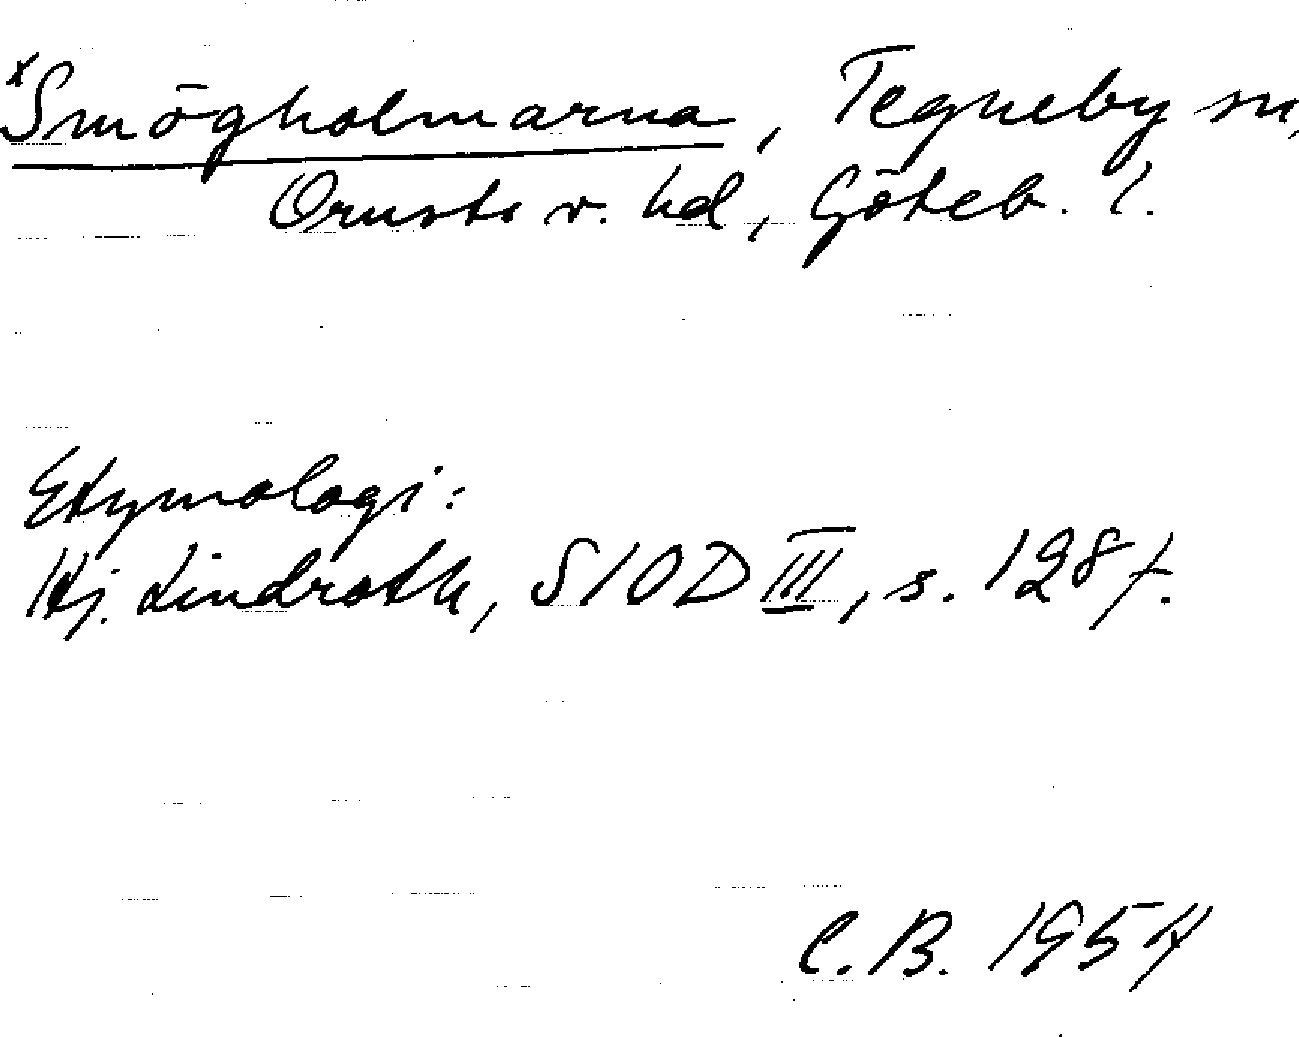 *Smögholmarna, Tegneby sn,
Orusts v. hd, Göteb. l.
Etymologi:
Hj. Lindroth, SIOD III, s. 128 f.
C.B. 1954